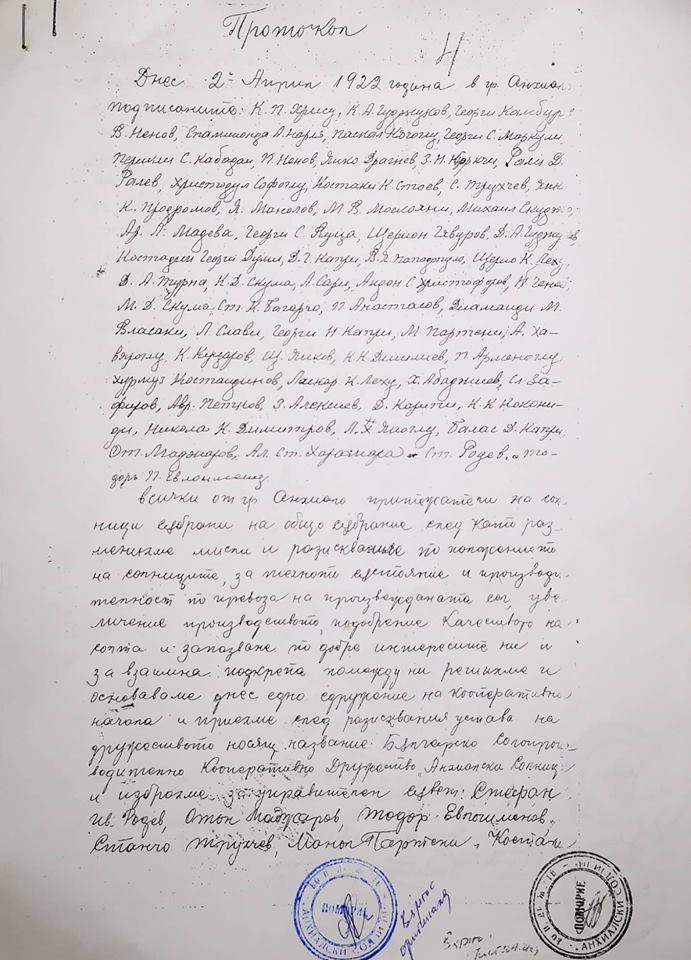 Протокол
Днес 2й Април 1922 година в гр. Анхиало
подписаните: К. П. Христу, К. А. Гуджуков, Георги Камбур
В. Ненов, Епаминонда Паскал Георги С. Маркули
Перикли С. Кабадаи, П. Ненов, Янко Драгнев, З. Н. Рали Д.
Ралев, Христодул Софоглу, Костаки К. Стоев, С. Трухчев, Яни
К. Продромов, Я. Манолов, М. В. Москояни, Михаил
Ар. Л. Мадева, Георги С. Яуца, Д. А. Гуджуков
Костадин Георги Дули, Д. Г. Капри, В. Я. Пападопулу, К. Леху,
Д. А. Турна, К. Д. Скума, А. Сари, Андон С. Христофоров, Н. Генов
М. Д. Скума, Ст. К. Багарчо, П. Анастасов, Диаманди М.
Власаки, Л. Слави, Георги Н. Капри, М. Партени, А. Ха-
К. Куцаров, Щ. Янков, К. К. П. Арменоглу
Хурмуз Костандинов, Ласкар К. Леху, Х. Абаджиев, Сл. За-
фиров, Авр. Петков, З. Алексиев, Д. Карити, К. К. Кокони-
ди, Никола К. Димитров, Л. Х. Яноглу, Балас Д. Капри,
От. Маджаров, Ал. Ст. Ст. Родев, и То-
доръ П. Евлогименов
всички от гр. Анхиало притежатели на сол-
ници събрани на общо събрание след като раз-
менихме мисли и разисквахме по положението
на солниците, за тяхното състояние и производи-
телност по превоза на произвежданата сол, уве-
личение производството, подобрение качеството на
солта и запазване по добре интересите ни и
за взаимна подкрепа помежду ни решихме и
основаваме днес едно сдружение на кооперативни
начала и приехме след разисквания устава на
дружеството носящ название: Българско Солопроиз-
водително Кооперативно Дружество „Анхиалски Солници
и избрахме за управителен съвет: Стефан
Ив. Родев, Отон Маджаров, Тодор Евлогименов,
Станчо Трухчев, Манол Партени, Костаки
ПОМОРИЕ
АНХИАЛСКИ СОЛНИЦИ
Вярно с
оригинала
ПОМОРИЕ
АНХИАЛСКИ СОЛНИЦИ
Вярно